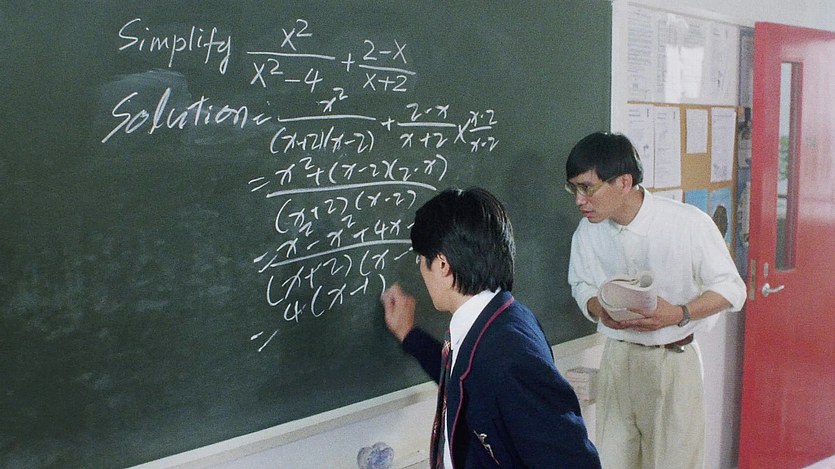 Simplify x²/(x²-4) + (2-x)/(x+2)
Solution: x²/((x+2)(x-2)) + (2-x)/(x+2) × (x-2)/(x-2)
= (x²+(x-2)(2-x))/((x+2)(x-2))
= (x²-x²+4x-)/((x+2)(x-
= 4(x-1)